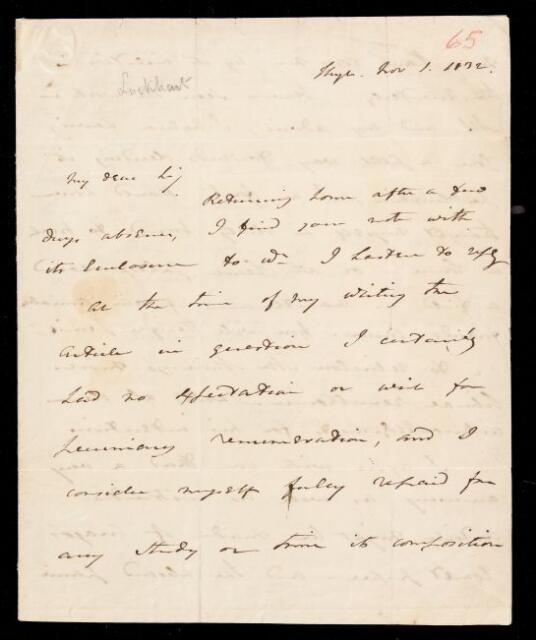 65
Lockhart
Nov 1. 1832.
My dear Sir
Returning home after a few
days absence, I find your note with
its Enclosure to wh I hasten to reply
at the time of my writing the
article in question I certainly
had no expectation or wish for
pecuniary remuneration, and I
consider myself fully repaid for
any study or time its composition